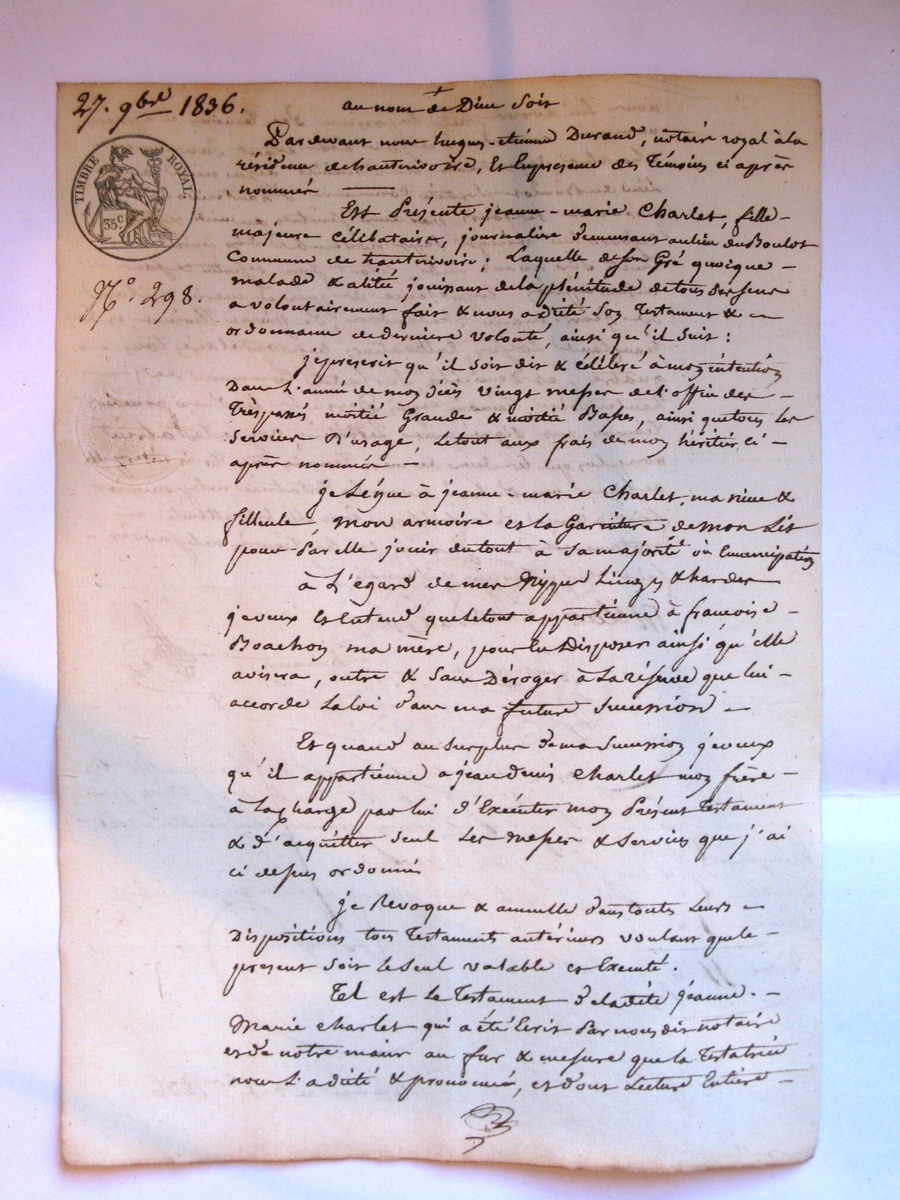 27. 9bre 1836.
au nom de Dieu Soit
TIMBRE ROYAL.
35c
N°. 298.
Pardevant nous hugues-etienne Durand, notaire royal à la
résidence de hauterivoire, Et En présence des Témoins ci après
nommés
Est Présente jeanne-marie Charlet, fille
majeure célibataire, journalière demeurant au lieu du Boulot
Commune de hauterivoire; Laquelle de son Gré quoique
malade & alitée jouissant de la plénitude de tous ses sens
a volontairement fait & nous a dicté Son Testament & 
ordonnance de dernière volonté, ainsi qu'il suit:
je prescrit qu'il soit dit & célébré à mon intention
Dans L'année de mon décès vingt messes de l'office des
Trèpassés moitié Grande & moitié Basses, ainsi que tous les
Services D'usage, Le tout aux frais de mon héritier ci-
après nommé
je Légue à jeanne-marie Charlet, ma niece &
filleule, mon armoire et la Garniture de mon Lit
pour Par elle jouir du tout à sa majorité ou Emancipation
à L'égard de mes Nippes Linges & hardes
je veux Et Entend que le tout appartienne à francoise
Boachon ma mère, pour En Disposer ainsi qu'elle
avisera, outre & Sans Déroger à La réserve que lui
accorde La loi dans ma future Succession
Et quand au surplus de ma Succession je veux
qu'il appartienne a jean denis charlet mon frère
à La charge par lui d'Exécuter mon Présent Testament
& d'acquitter Seul Les messes & Services que j'ai
ci dessus ordonné
je Revoque & annulle dans toutes Leurs
Dispositions tous Testaments antérieurs voulant que le
present soit Le seul valable et Executé.
Tel est Le Testament de ladite jeanne-
Marie charlet qui a été Ecrit Par nous dit notaire
et de notre main au fur & mesure que la Testatrice
nous L'a dicté & prononcé, et dont Lecture Entière